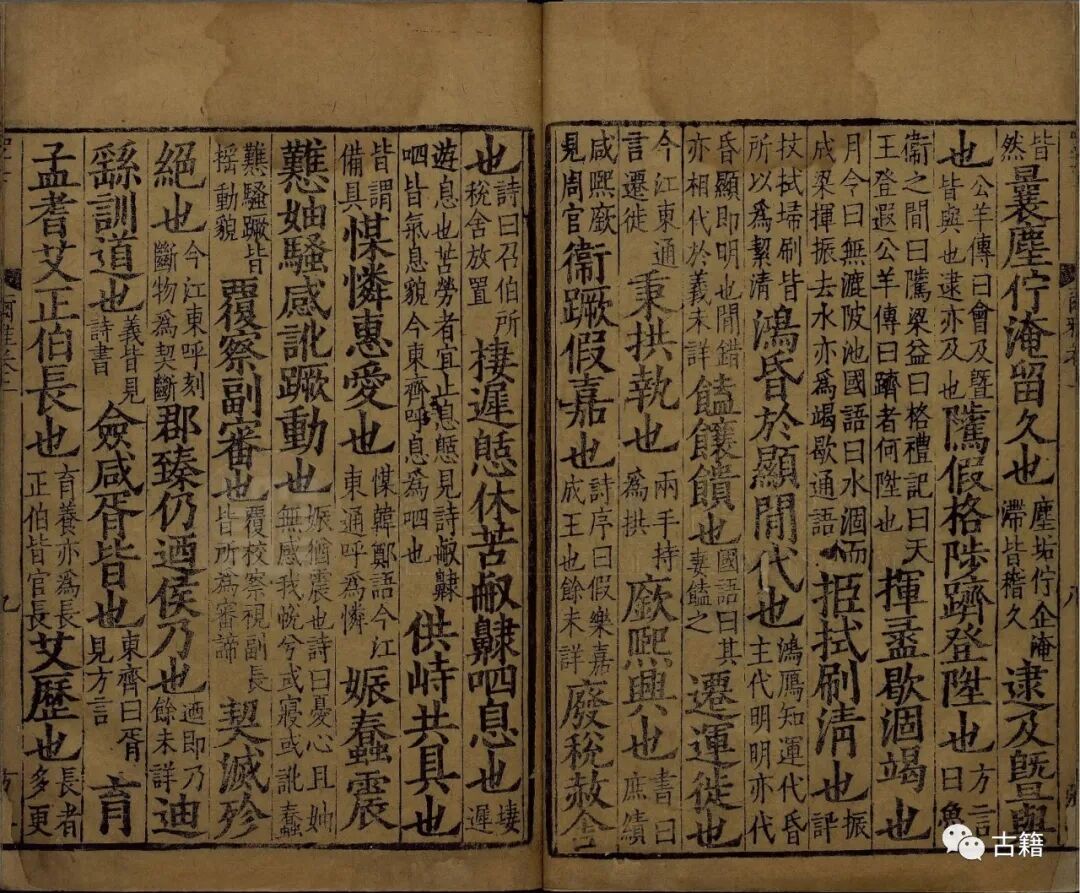 皆然曩塵佇淹留久也塵垢佇企淹滯皆稽久逮及曁與
也公羊傳曰會及曁皆與也逮亦及也騭假格陟躋登陞也方言曰魯
衞之間曰騭梁益曰格禮記曰天王登遐公羊傳曰躋者何陞也揮盝歇涸竭也
月令曰無漉陂池國語曰水涸而成梁揮振去水亦爲竭歇通語挋拭刷清也振
拭埽刷皆所以爲絜清鴻昏於顯間代也鴻鴈知運代昏主代明明亦代
昏顯即明也間錯亦相代於義未詳饁饟饋也國語曰其妻饁之遷運徙也
今江東通言遷徙秉拱執也兩手持爲拱廞熙興也書曰庶績
咸熙廞見周官衞蹶假嘉也詩序曰假樂嘉成王也餘未詳廢稅赦舍
也詩曰召伯所稅舍放置棲遲憩休苦㕟齂呬息也棲遲
遊息也苦勞者宜止息憩見詩㕟齂呬皆氣息貌今東齊呼息爲呬也供峙共具也
皆謂備具㥒憐惠愛也㥒韓鄭語今江東通呼爲憐娠蠢震
戁妯騷感訛蹶動也娠猶震也詩曰憂心且妯無感我帨兮或寢或訛蠢
戁騷蹶皆搖動貌覆察副審也覆校察視副長皆所爲審諦契滅殄
絕也今江東呼刻斷物爲契斷郡臻仍迺侯乃也迺即乃餘未詳迪
繇訓道也義皆見詩書僉咸胥皆也東齊曰胥見方言育
孟耆艾正伯長也育養亦爲長正伯皆官長艾歷也長者多更
九
八
古籍